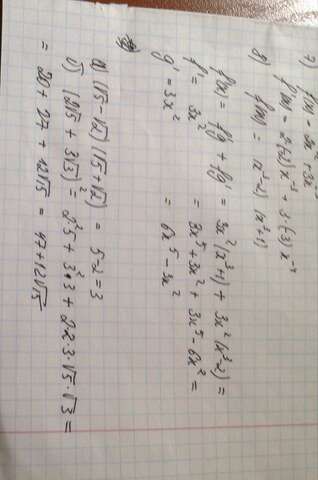 7) f(x) = 2x⁻² + 3x⁻³
f'(x) = 2·(-2)x⁻³ + 3·(-3)x⁻⁴
8) f(x) = (x³-2)(x³+1)
f'(x) = f'g + fg' = 3x²(x³+1) + 3x²(x³-2) =
f' = 3x² = 3x⁵+3x² + 3x⁵-6x² =
g' = 3x² = 6x⁵ - 3x²
a) (√5-√2)(√5+√2) = 5-2=3
б) (2√5 + 3√3)² = 2²·5 + 3²·3 + 2·2·3·√5·√3 =
= 20 + 27 + 12√15 = 47+12√15